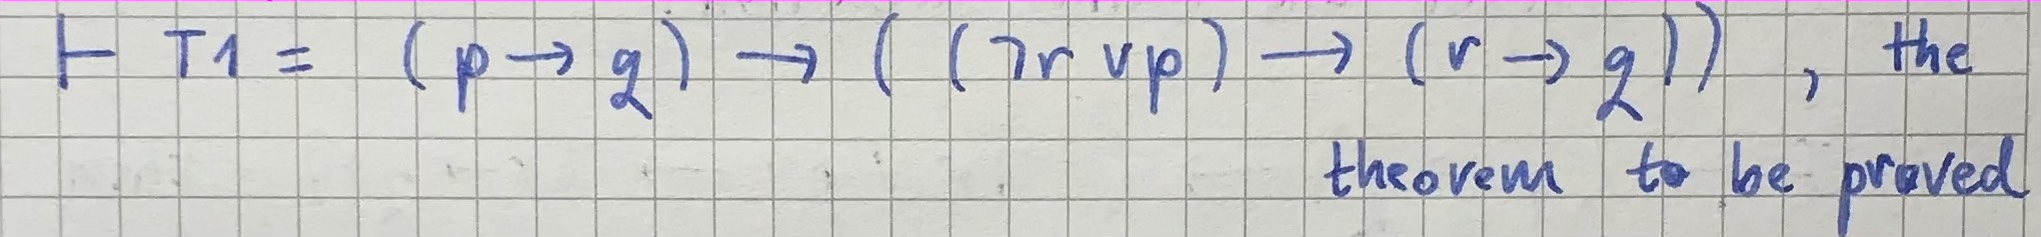 ⊢ T1 = (p → q) → ((¬r ∨ p) → (r → q)), the
theorem to be proved